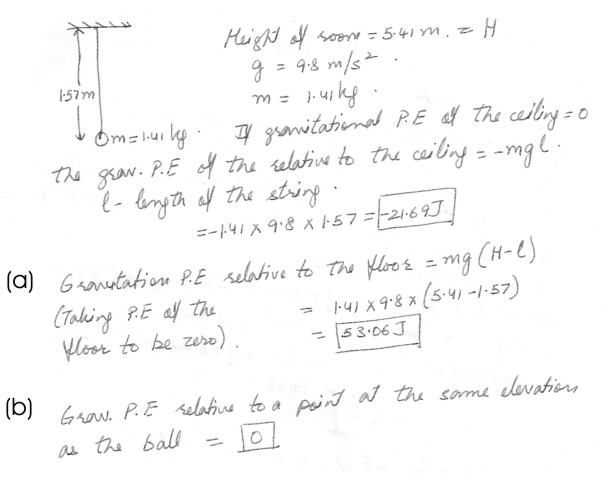 Height of room = 5.41 m. = H
g = 9.8 m/s².
m = 1.41 kg.
1.57m
m = 1.41 kg. If gravitational P.E of the ceiling = 0
the grav. P.E of the relative to the ceiling = -mgl.
l - length of the string.
= -1.41 x 9.8 x 1.57 = -21.69J
(a) Gravitation P.E relative to the floor = mg (H-l)
(Taking P.E of the = 1.41 x 9.8 x (5.41 - 1.57)
floor to be zero). = 53.06 J
(b) Grav. P.E relative to a point at the same elevation
as the ball = 0